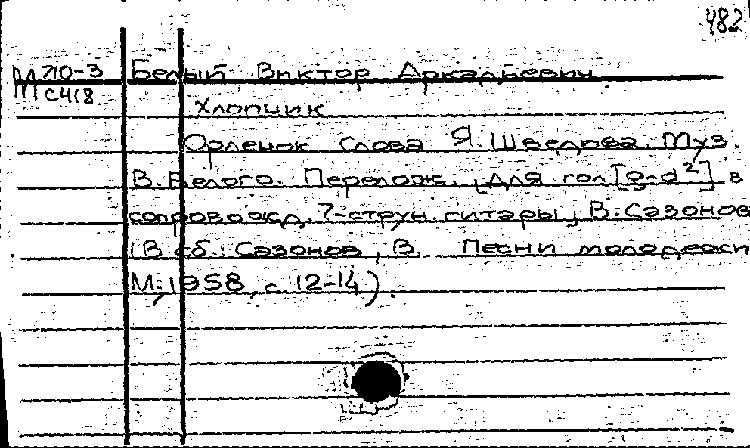 482
М 710-3 Белый, Виктор Аркадьевич.
С418 Хлопчик
Орленок Слова Я. Шведова. Муз.
В. Белого. Перелож. для гол [g-d²] в
сопровожд. 7-струн. гитары, В. Сазонов
(В сб.: Сазонов, В. Песни молодости
М., 1958, с. 12-14).